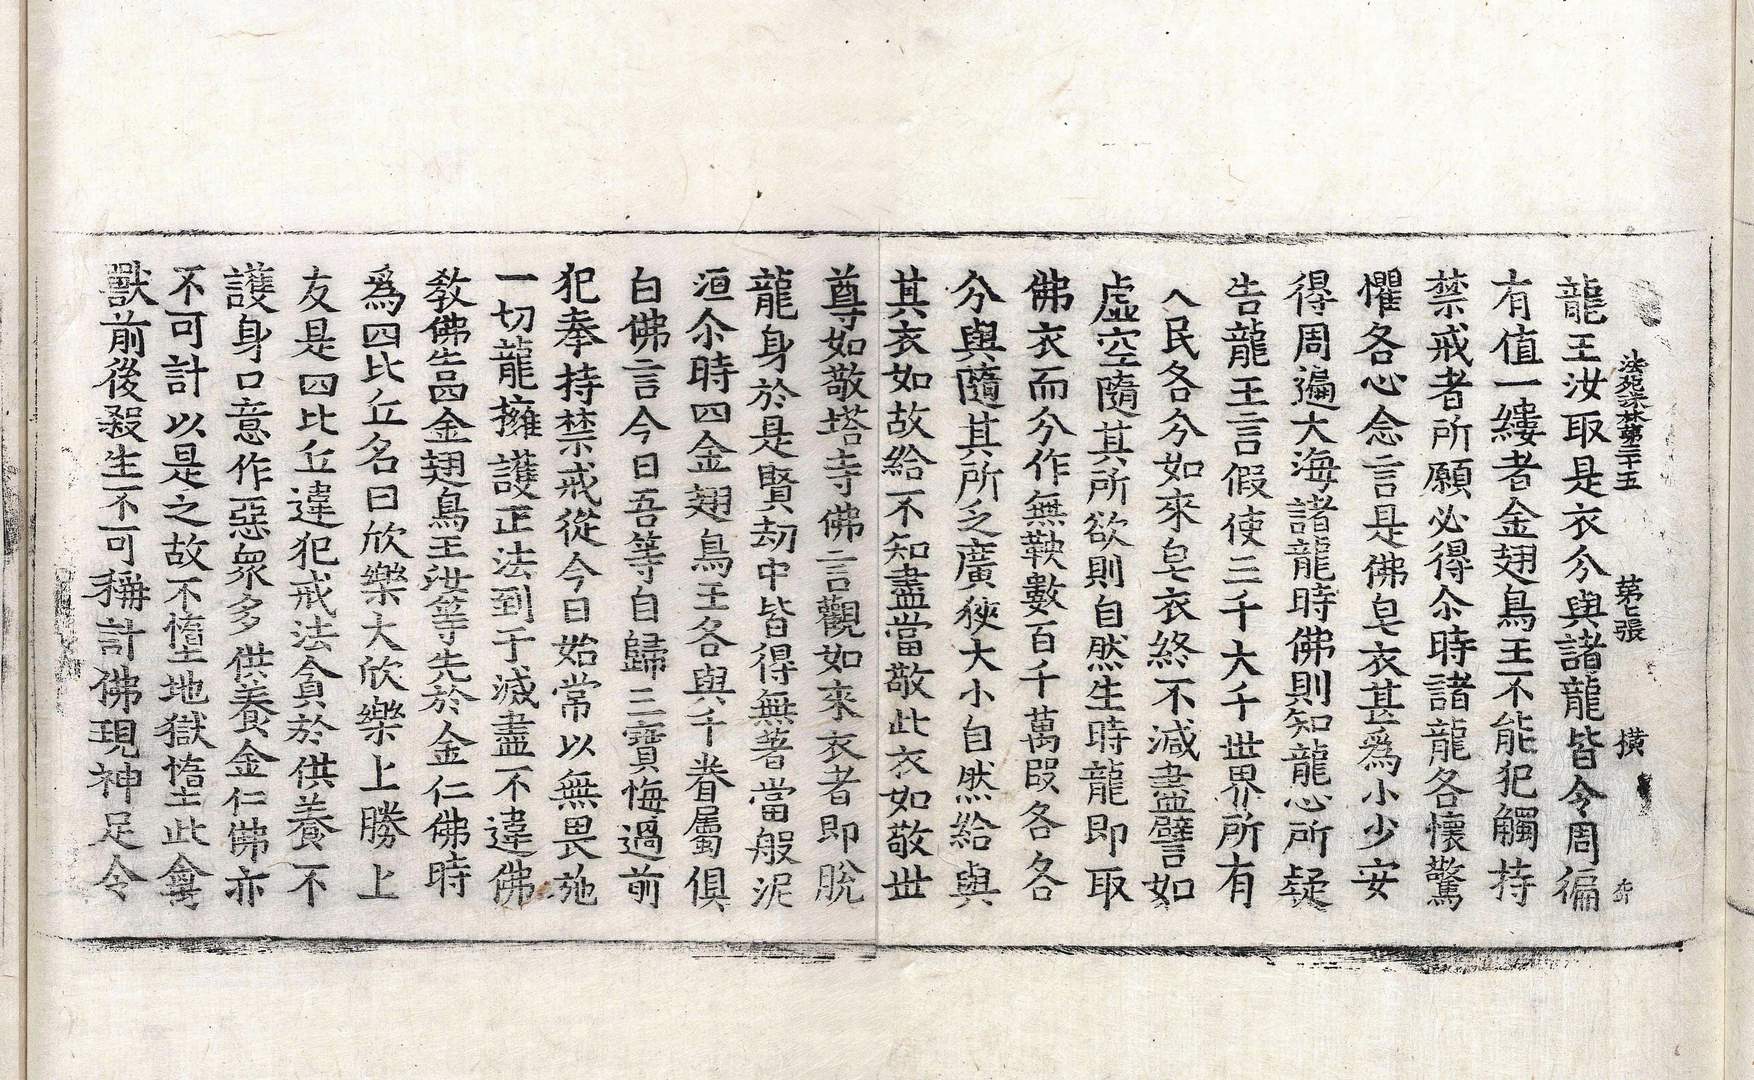 法苑珠林第三十五 第七張 橫
龍王汝取是衣分與諸龍皆令周徧
有值一縷者金翅鳥王不能犯觸持
禁戒者所願必得尒時諸龍各懷驚
懼各心念言是佛皂衣甚爲小少安
得周遍大海諸龍時佛則知龍心所疑
告龍王言假使三千大千世界所有
人民各分如來皂衣終不減盡譬如
虛空隨其所欲則自然生時龍即取
佛衣而分作無鞅數百千萬段各各
分與隨其所之廣狹大小自然給與
其衣如故給不知盡當敬此衣如敬世
尊如敬塔寺佛言觀如來衣者即脫
龍身於是賢劫中皆得無著當般泥
洹尒時四金翅鳥王各與千眷屬俱
白佛言今日吾等自歸三寶悔過前
犯奉持禁戒從今日始常以無畏施
一切龍擁護正法到于減盡不違佛
敎佛告四金翅鳥王汝等先於金仁佛時
爲四比丘名曰欣樂大欣樂上勝上
友是四比丘違犯戒法貪於供養不
護身口意作惡衆多供養金仁佛亦
不可計以是之故不墮地獄墮此禽
獸前後殺生不可稱計佛現神足令